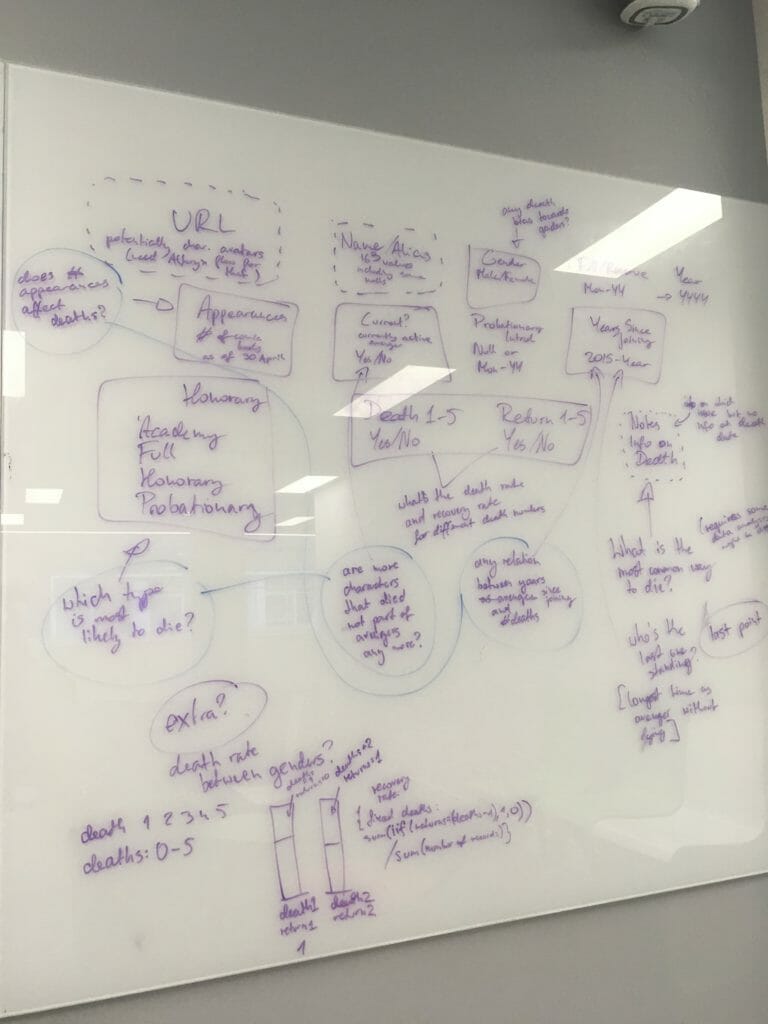 URL
potentially char. avatars
(need Alteryx flow for
that)
does #
appearances
affect
deaths?
Appearances
# of comic
books
as of 30 April
Name/Alias
163 values
including some
nulls
any death
bias towards
gender?
Gender
Male/Female
Full/Reserve
Mon-YY
→ Year
YYYY
Current?
currently active
avenger
Yes/No
Probationary
Introd
Null or
Mon-YY
Years Since
joining
2015-Year
Honorary
Academy
Full
Honorary
Probationary
Death 1-5
Yes/No
Return 1-5
Yes/No
Notes
Info on
Death
info on
but no
info on death
date
what's the death rate
and recovery rate
for different death numbers
What is the
most common way
to die?
(requires some
data
which type
is most
likely to die?
are more
characters
that died
not part of
avengers
any more?
any relation
between years
since
joining
and
#deaths
who's the
last one
standing?
last point
[longest time as
avenger without
dying]
extra?
death rate
between genders?
death 1 2 3 4 5
deaths: 0-5
return=0
deaths=2
return=1
recovery
rate:
{fixed deaths:
sum(iif(returns=deaths-1,1,0))
/sum(number of records)}
death1
return1
1
death2
return2